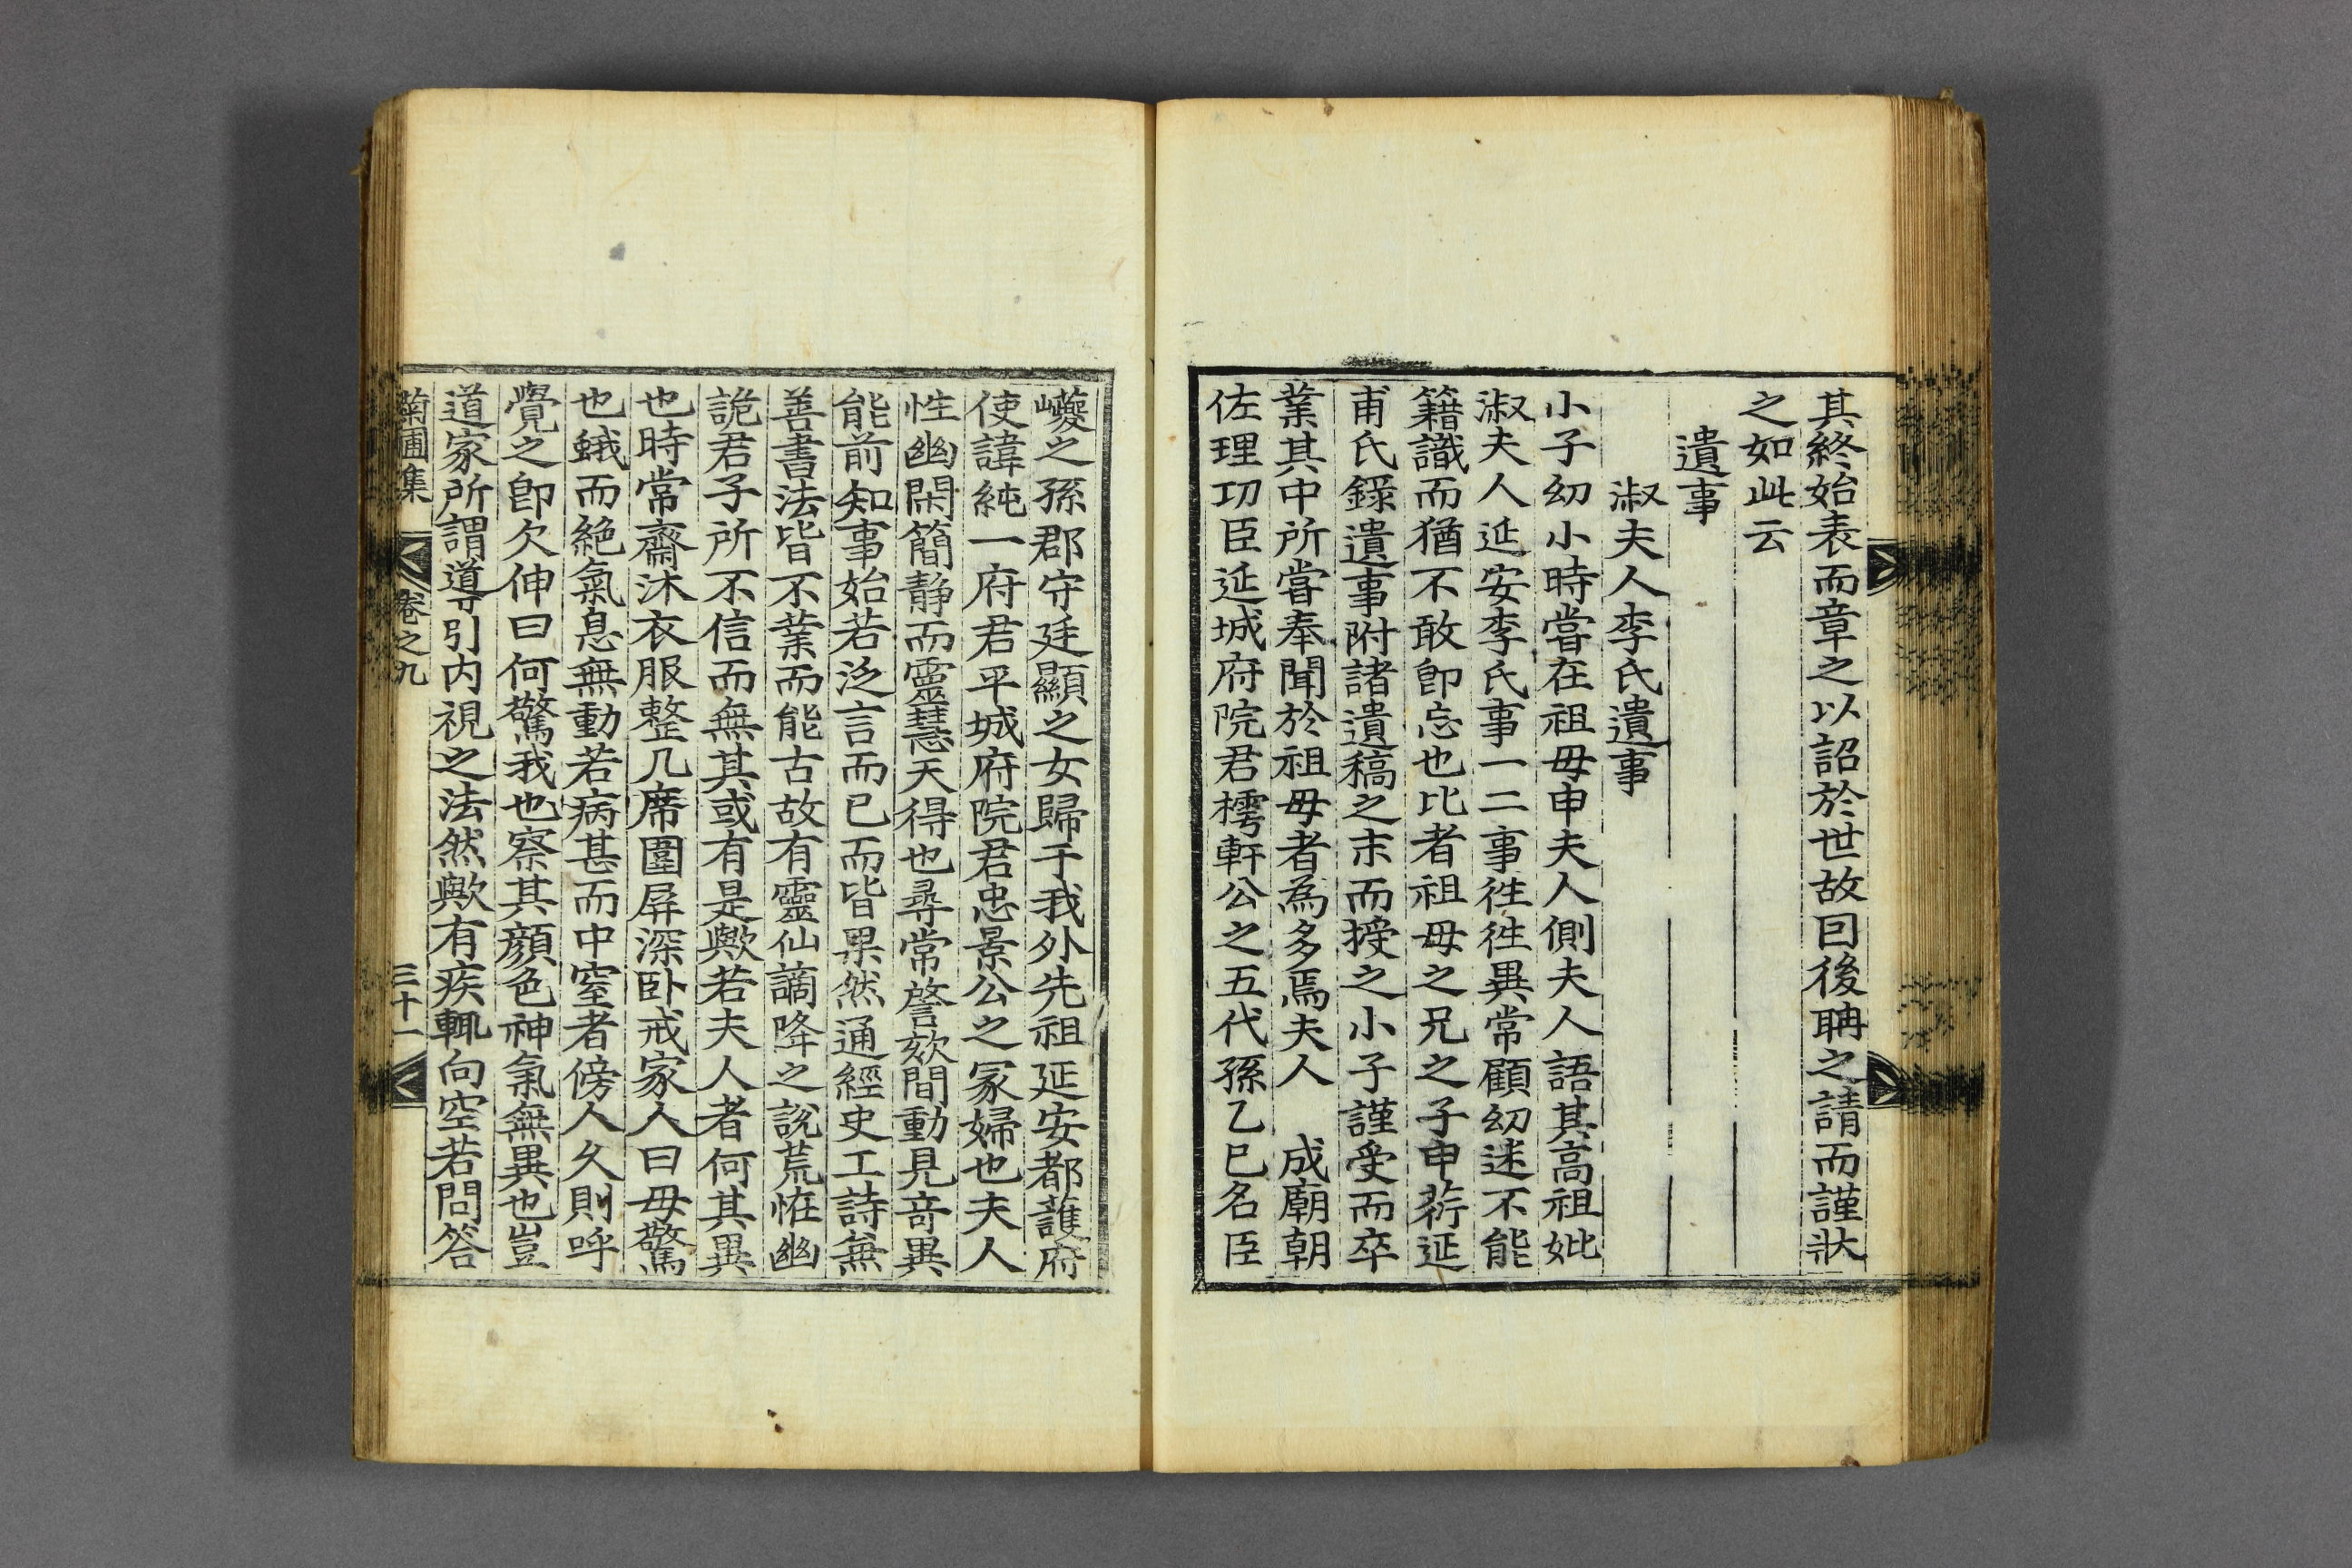 其終始表而章之以詔於世故因後聃之請而謹狀
之如此云
遺事
淑夫人李氏遺事
小子幼小時嘗在祖母申夫人側夫人語其高祖妣
淑夫人延安李氏事一二事徃徃異常顧幼迷不能
籍識而猶不敢卽忘也比者祖母之兄之子申𦿆延
甫氏錄遺事附諸遺稿之末而授之小子謹受而卒
業其中所嘗奉聞於祖母者為多焉夫人 成廟朝
佐理功臣延城府院君樗軒公之五代孫乙巳名臣
巙之孫郡守廷顯之女歸于我外先祖延安都護府
使諱純一府君平城府院君忠景公之冢婦也夫人
性幽閑簡靜而靈慧天得也尋常謦欬間動見奇異
能前知事始若泛言而已而皆果然通經史工詩無
善書法皆不業而能古故有靈仙謫降之說荒恠幽
詭君子所不信而無其或有是歟若夫人者何其異
也時常齋沐衣服整几席圍屏深卧戒家人曰毋驚
也蛾而絶氣息無動若病甚而中窒者傍人久則呼
覺之卽欠伸曰何驚我也察其顔色神氣無異也豈
道家所謂導引内視之法然歟有疾輒向空若問答
菊圃集 卷之九 三十一